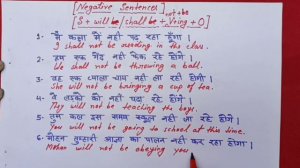 [Negative Sentences]
[S + will be / shall be + Ving + O]
1. मैं कक्षा में नहीं पढ़ रहा हूँगा।
I shall not be reading in the class.
2. हम एक गेंद नहीं फेंक रहे होंगे।
We shall not be throwing a ball.
3. वह एक प्याला चाय नहीं ला रही होगी।
She will not be bringing a cup of tea.
4. वे लड़कों को नहीं पढ़ा रहे होंगे।
They will not be teaching the boys.
5. तुम कल इस समय स्कूल नहीं जा रहे होगे।
You will not be going to school at this time.
6. मोहन तुम्हारी आज्ञा का पालन नहीं कर रहा होगा।
Mohan will not be obeying you